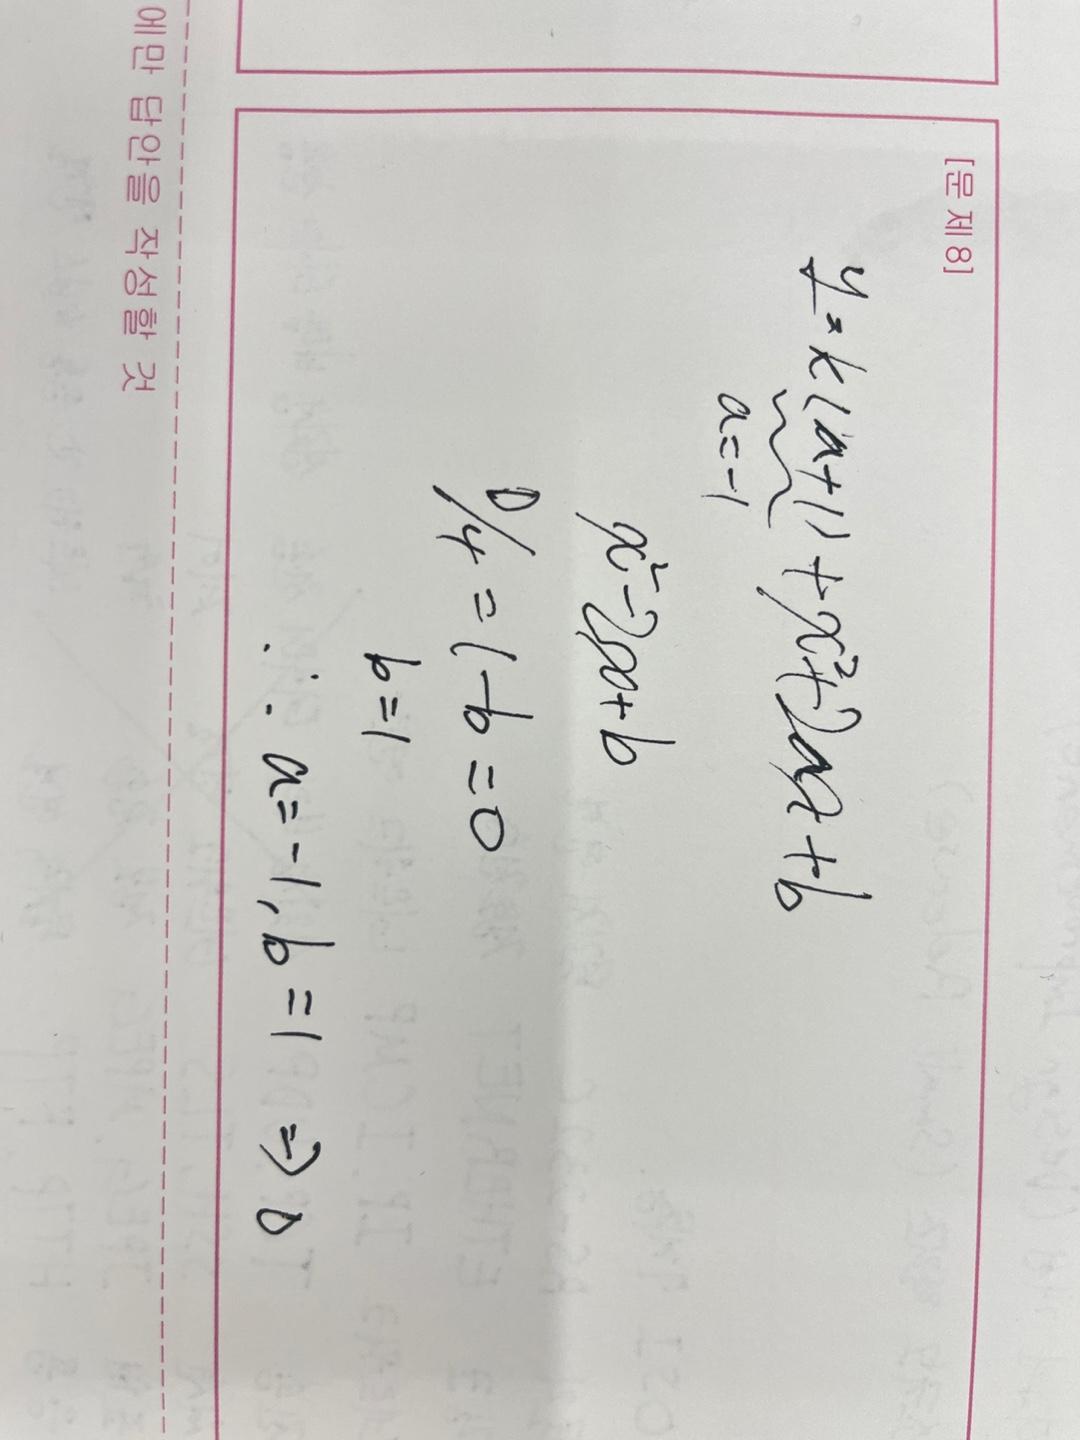 [문 제 8]
y = k(a+1) + x² + 2ax + b
a = -1
x² - 2x + b
D/4 = 1 - b = 0
b = 1
∴ a = -1, b = 1 ⇒ 0
에만 답안을 작성할 것